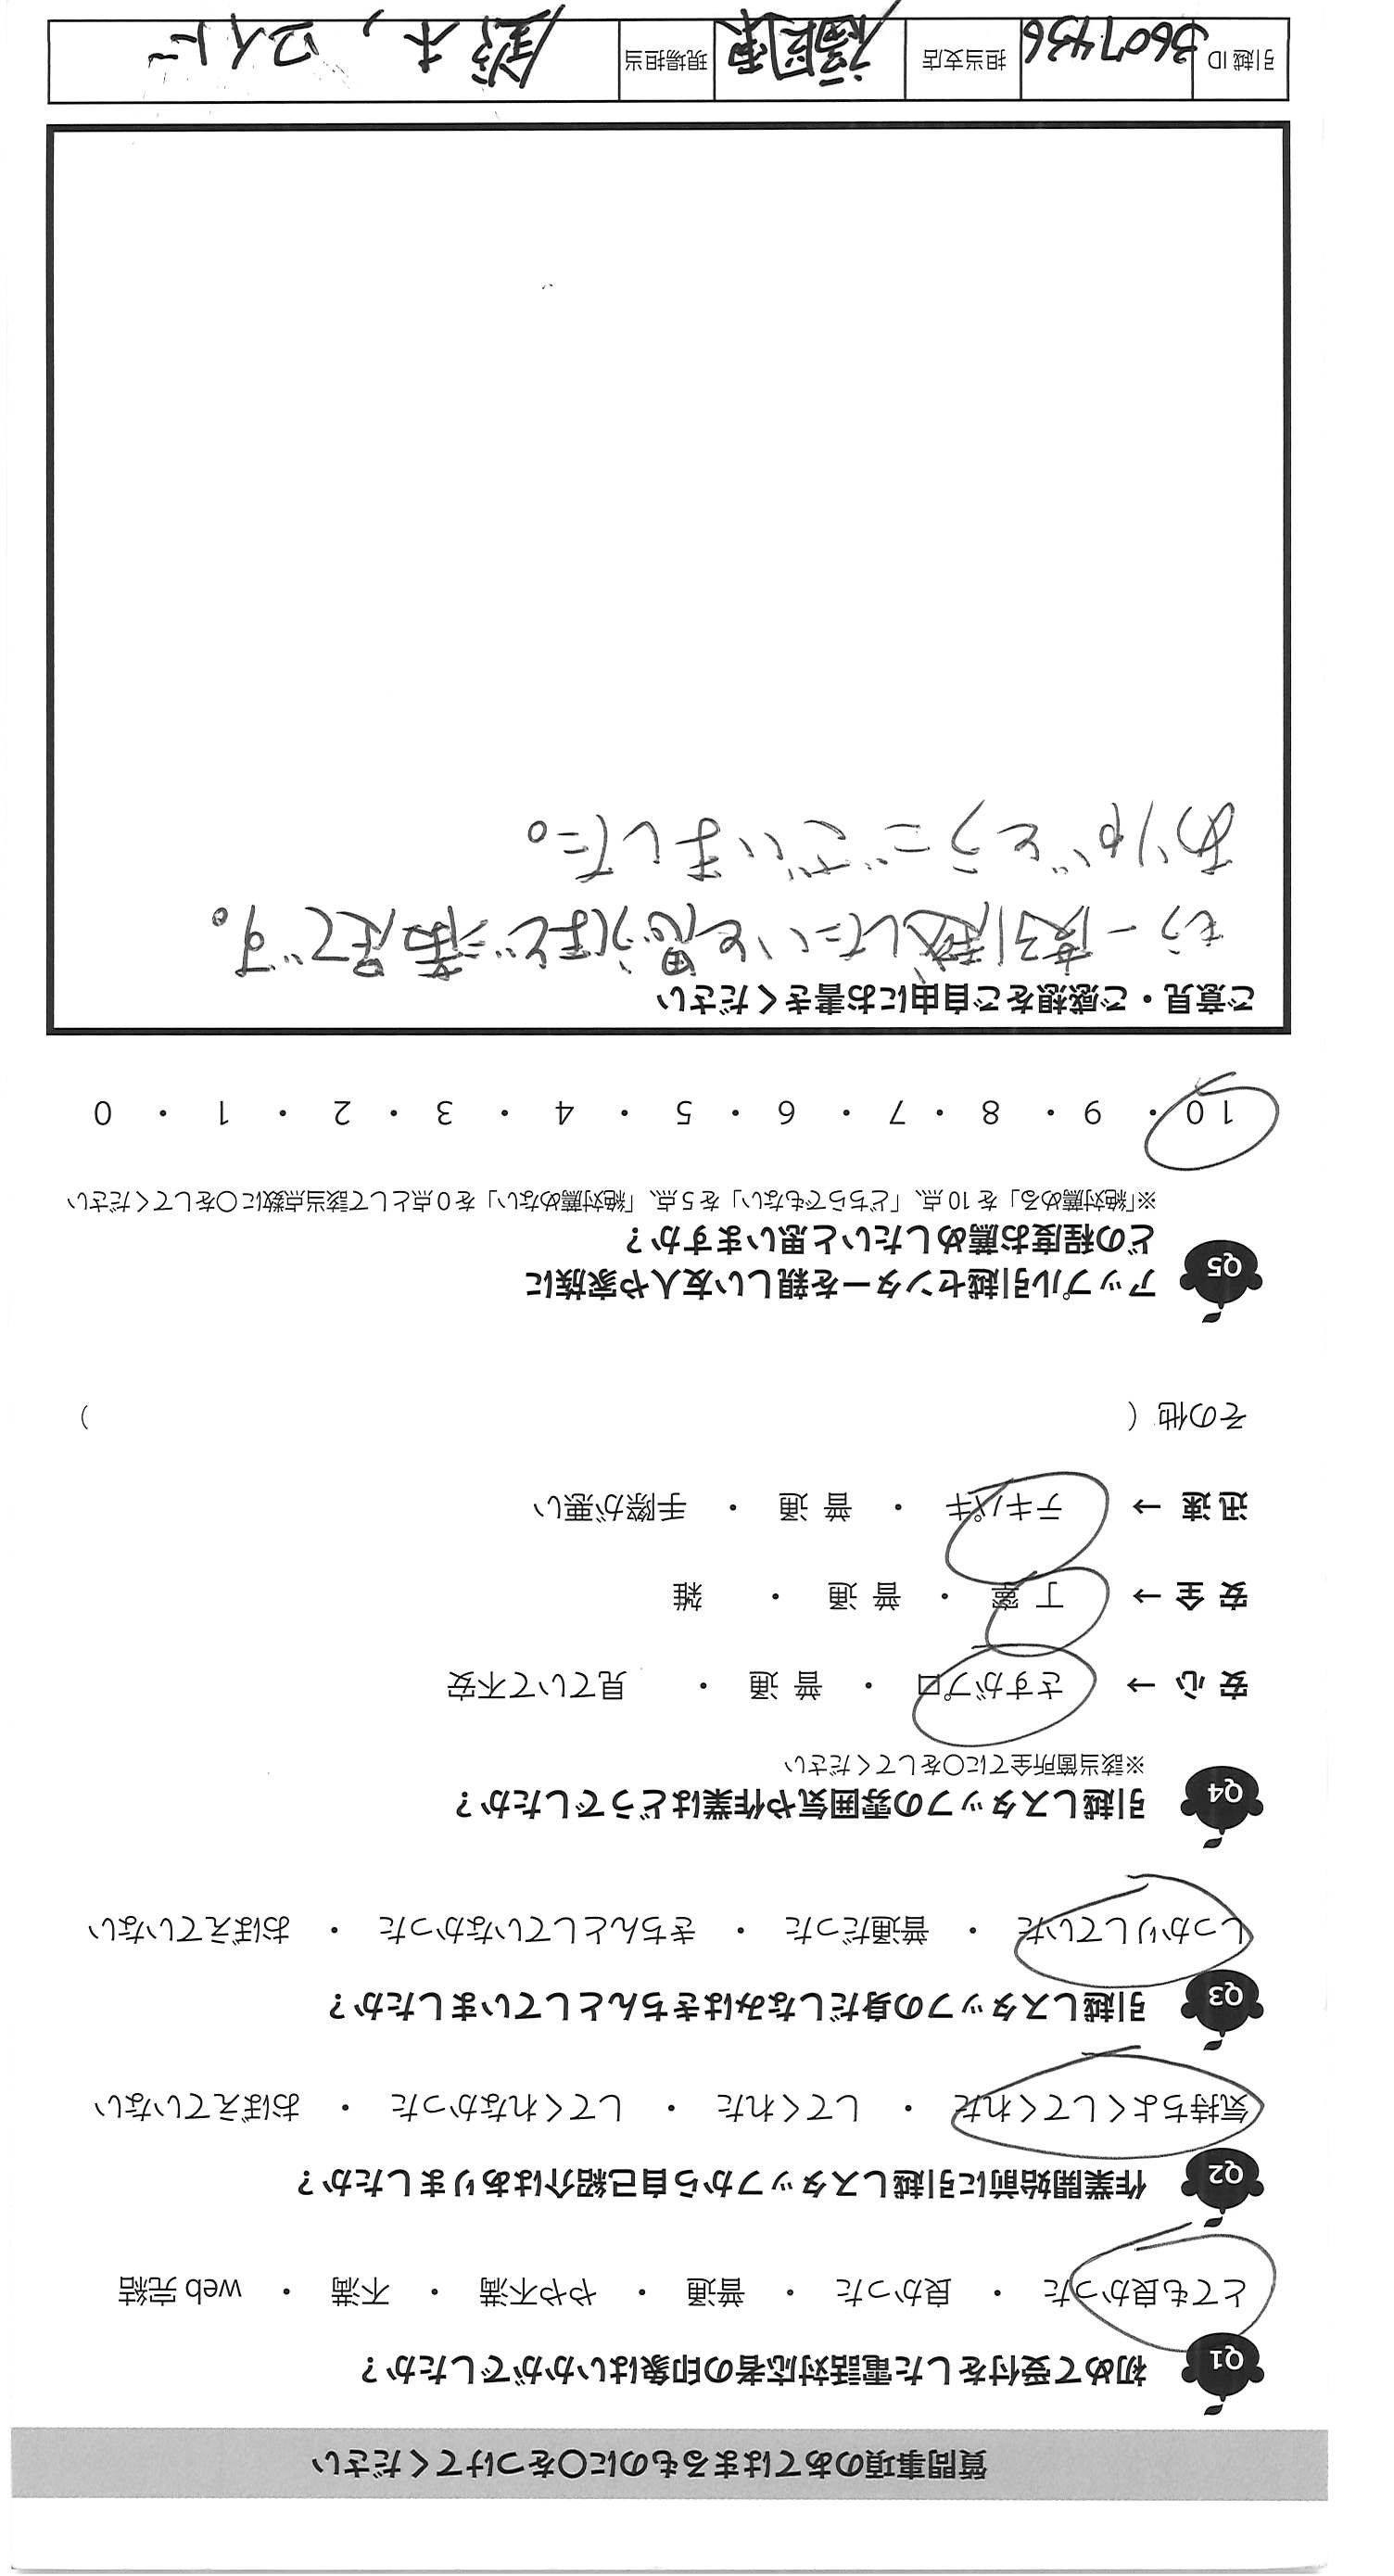 質問事項のあてはまるものに〇をつけてください
Q1 初めて受付をした電話対応者の印象はいかがでしたか？
とても良かった ・ 良かった ・ 普通 ・ やや不満 ・ 不満 ・ web 完結
Q2 作業開始前に引越しスタッフから自己紹介はありましたか？
気持ちよくしてくれた ・ してくれた ・ してくれなかった ・ おぼえていない
Q3 引越しスタッフの身だしなみはきちんとしていましたか？
しっかりしていた ・ 普通だった ・ きちんとしていなかった ・ おぼえていない
Q4 引越しスタッフの雰囲気や作業はどうでしたか？
※該当箇所全てに〇をしてください
安 心 → さすがプロ ・ 普 通 ・ 見ていて不安
安 全 → 丁 寧 ・ 普 通 ・ 雑
迅 速 → テキパキ ・ 普 通 ・ 手際が悪い
その他（ ）
Q5 アップル引越センターを親しい友人や家族に
どの程度お薦めしたいと思いますか？
※「絶対薦める」を 10 点、「どちらでもない」を 5 点、「絶対薦めない」を 0 点として該当点数に〇をしてください
10 ・ 9 ・ 8 ・ 7 ・ 6 ・ 5 ・ 4 ・ 3 ・ 2 ・ 1 ・ 0
ご意見・ご感想をご自由にお書きください
もう一度引越したいと思うほど満足です。
ありがとうございました。
引越 ID 3607436 担当支店 福岡東 現場担当 鈴木, ワイド